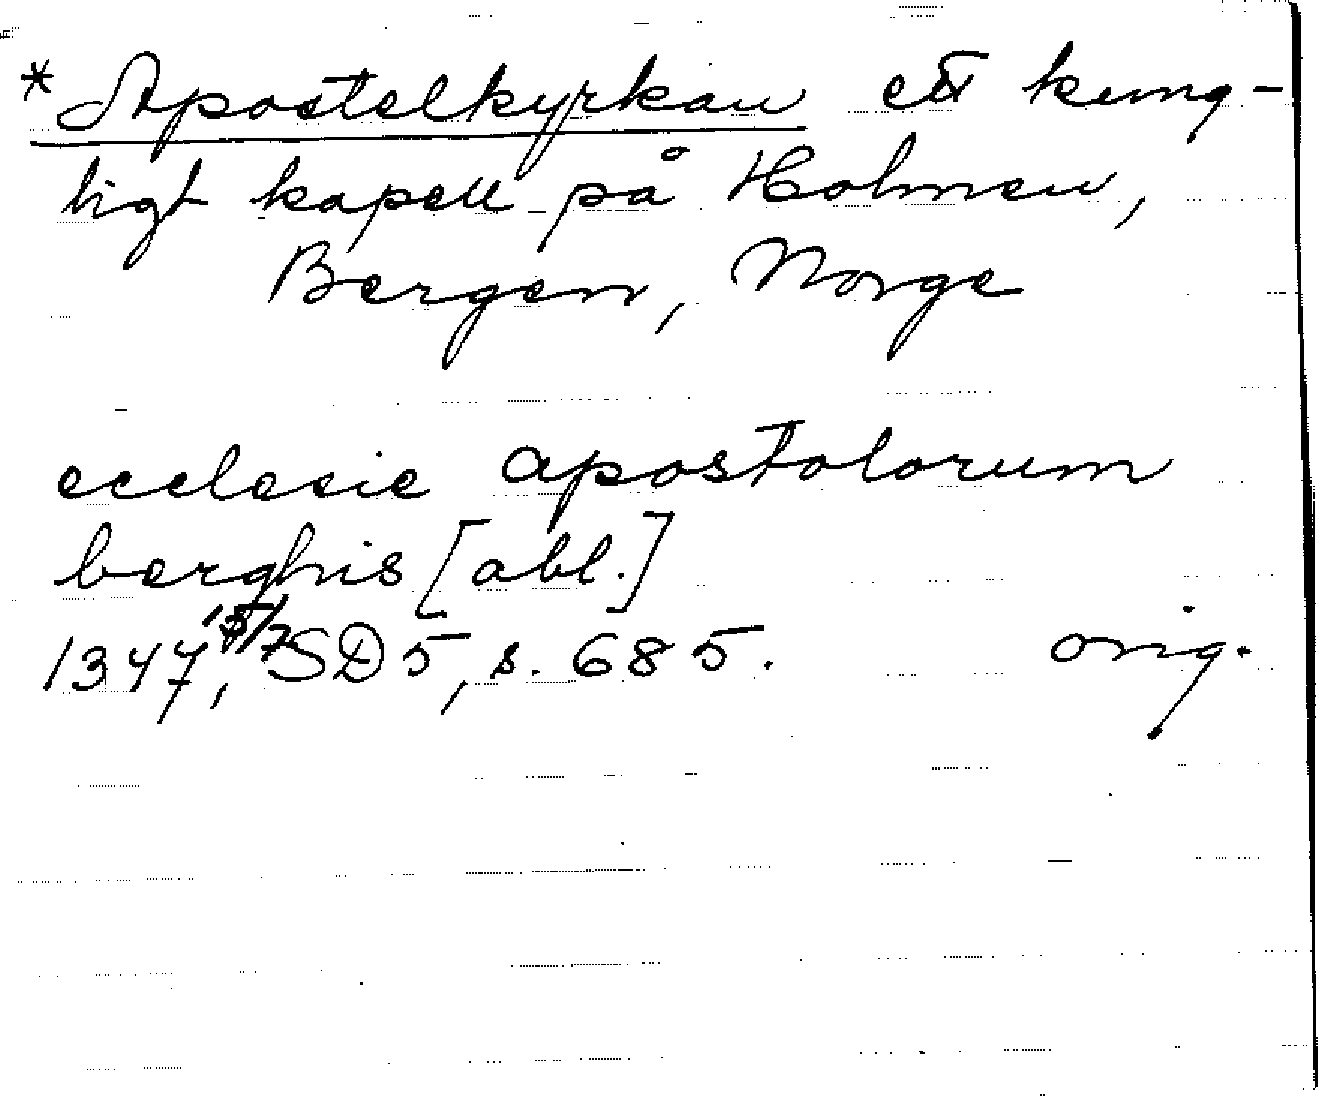 * Apostelkyrkan ett kung-
ligt kapell på Holmen,
Bergen, Norge
ecclesie apostolorum
berghis [abl.]
1347, 15/7 SD 5, s. 685. orig.